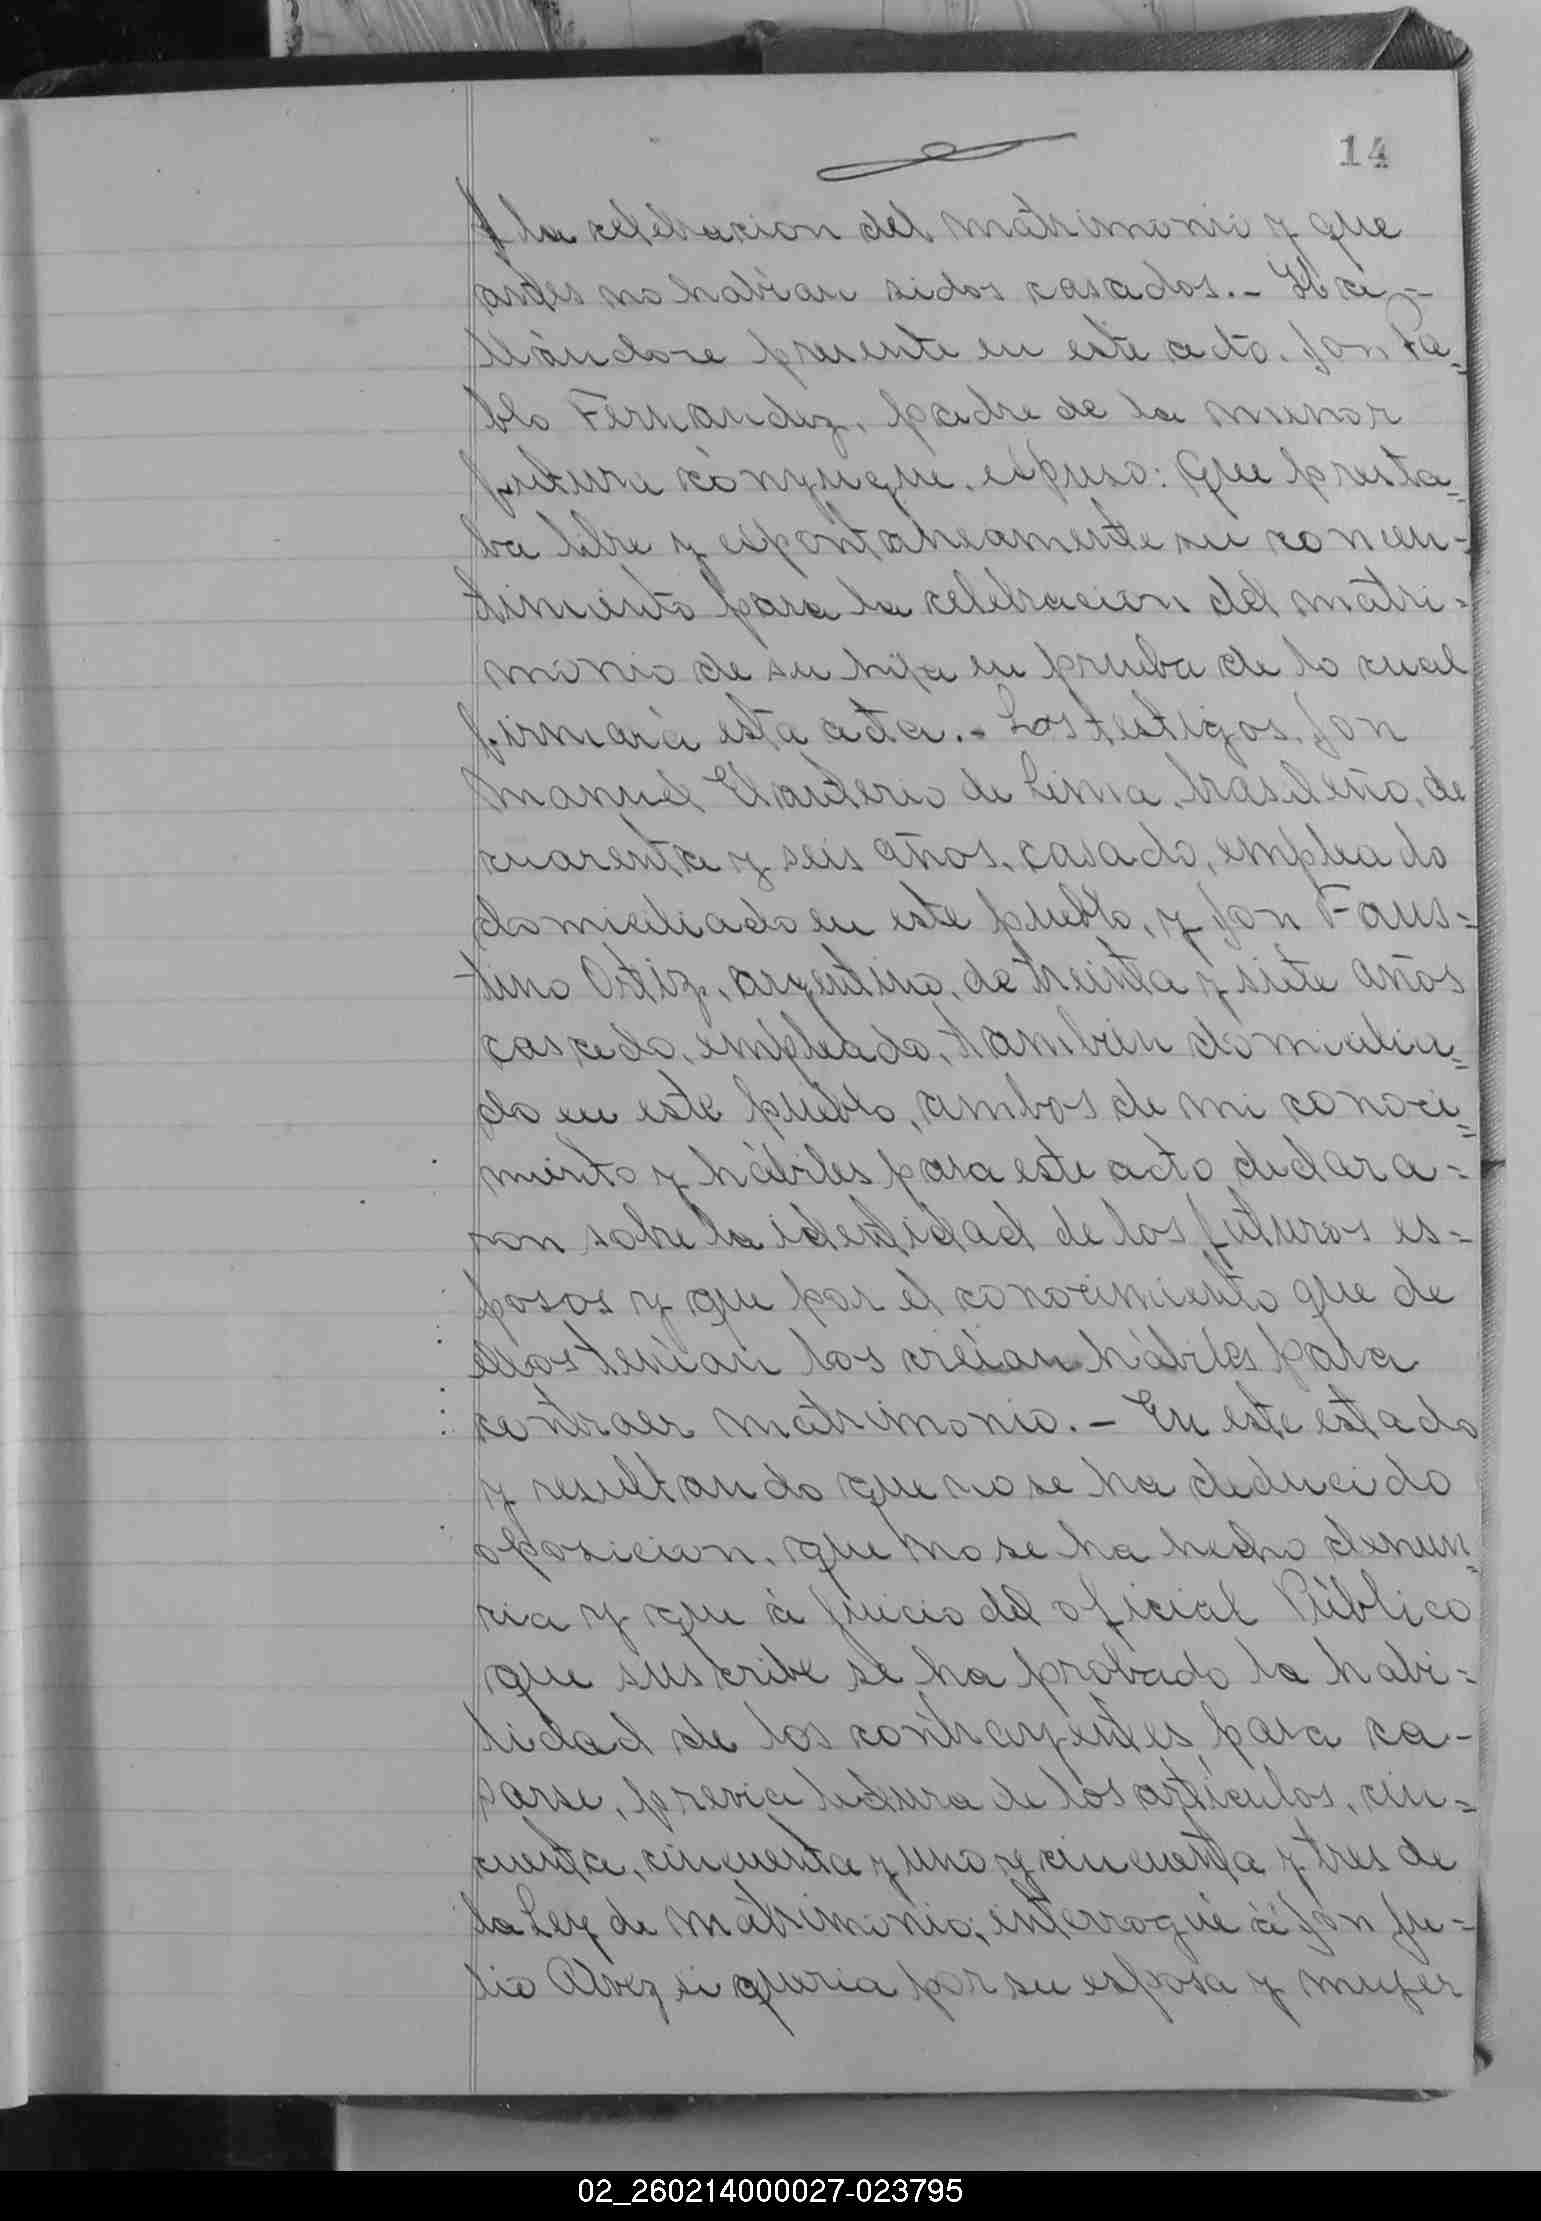 14
á la celebracion del matrimonio y que
antes no habian sidos casados.- Ha-
llándose presente en este acto, Don Pa=
blo Fernandez, padre de la menor
futura cónyugue, espuso: Que presta=
ba libre y espontaneamente su consen-
timiento para la celebracion del matri=
monio de su hija en prueba de lo cual
firmará esta acta.- Los testigos, Don
Manuel Elauterio de Lima, brasileño, de
cuarenta y seis años, casado, empleado
domiciliado en este pueblo, y Don Faus=
tino Ortiz, argentino, de treinta y siete años
casado, empleado, tambien domicilia=
do en este pueblo, ambos de mi conoci=
miento y hábiles para este acto declara=
ron sobre la identidad de los futuros es=
posos y que por el conocimiento que de
ellos tenian los creian hábiles para
contraer matrimonio.- En este estado
y resultando que no se ha deducido
oposicion, que no se ha hecho denun=
cia y que á juicio del oficial Público
que suscribe se ha probado la habi=
lidad de los contrayentes para ca-
sarse, previa lectura de los artículos, cin=
cuenta, cincuenta y uno y cincuenta y tres de
la Ley de Matrimonio; interrogué á Don Ju=
lio Alvez si queria por su esposa y mujer
02_260214000027-023795